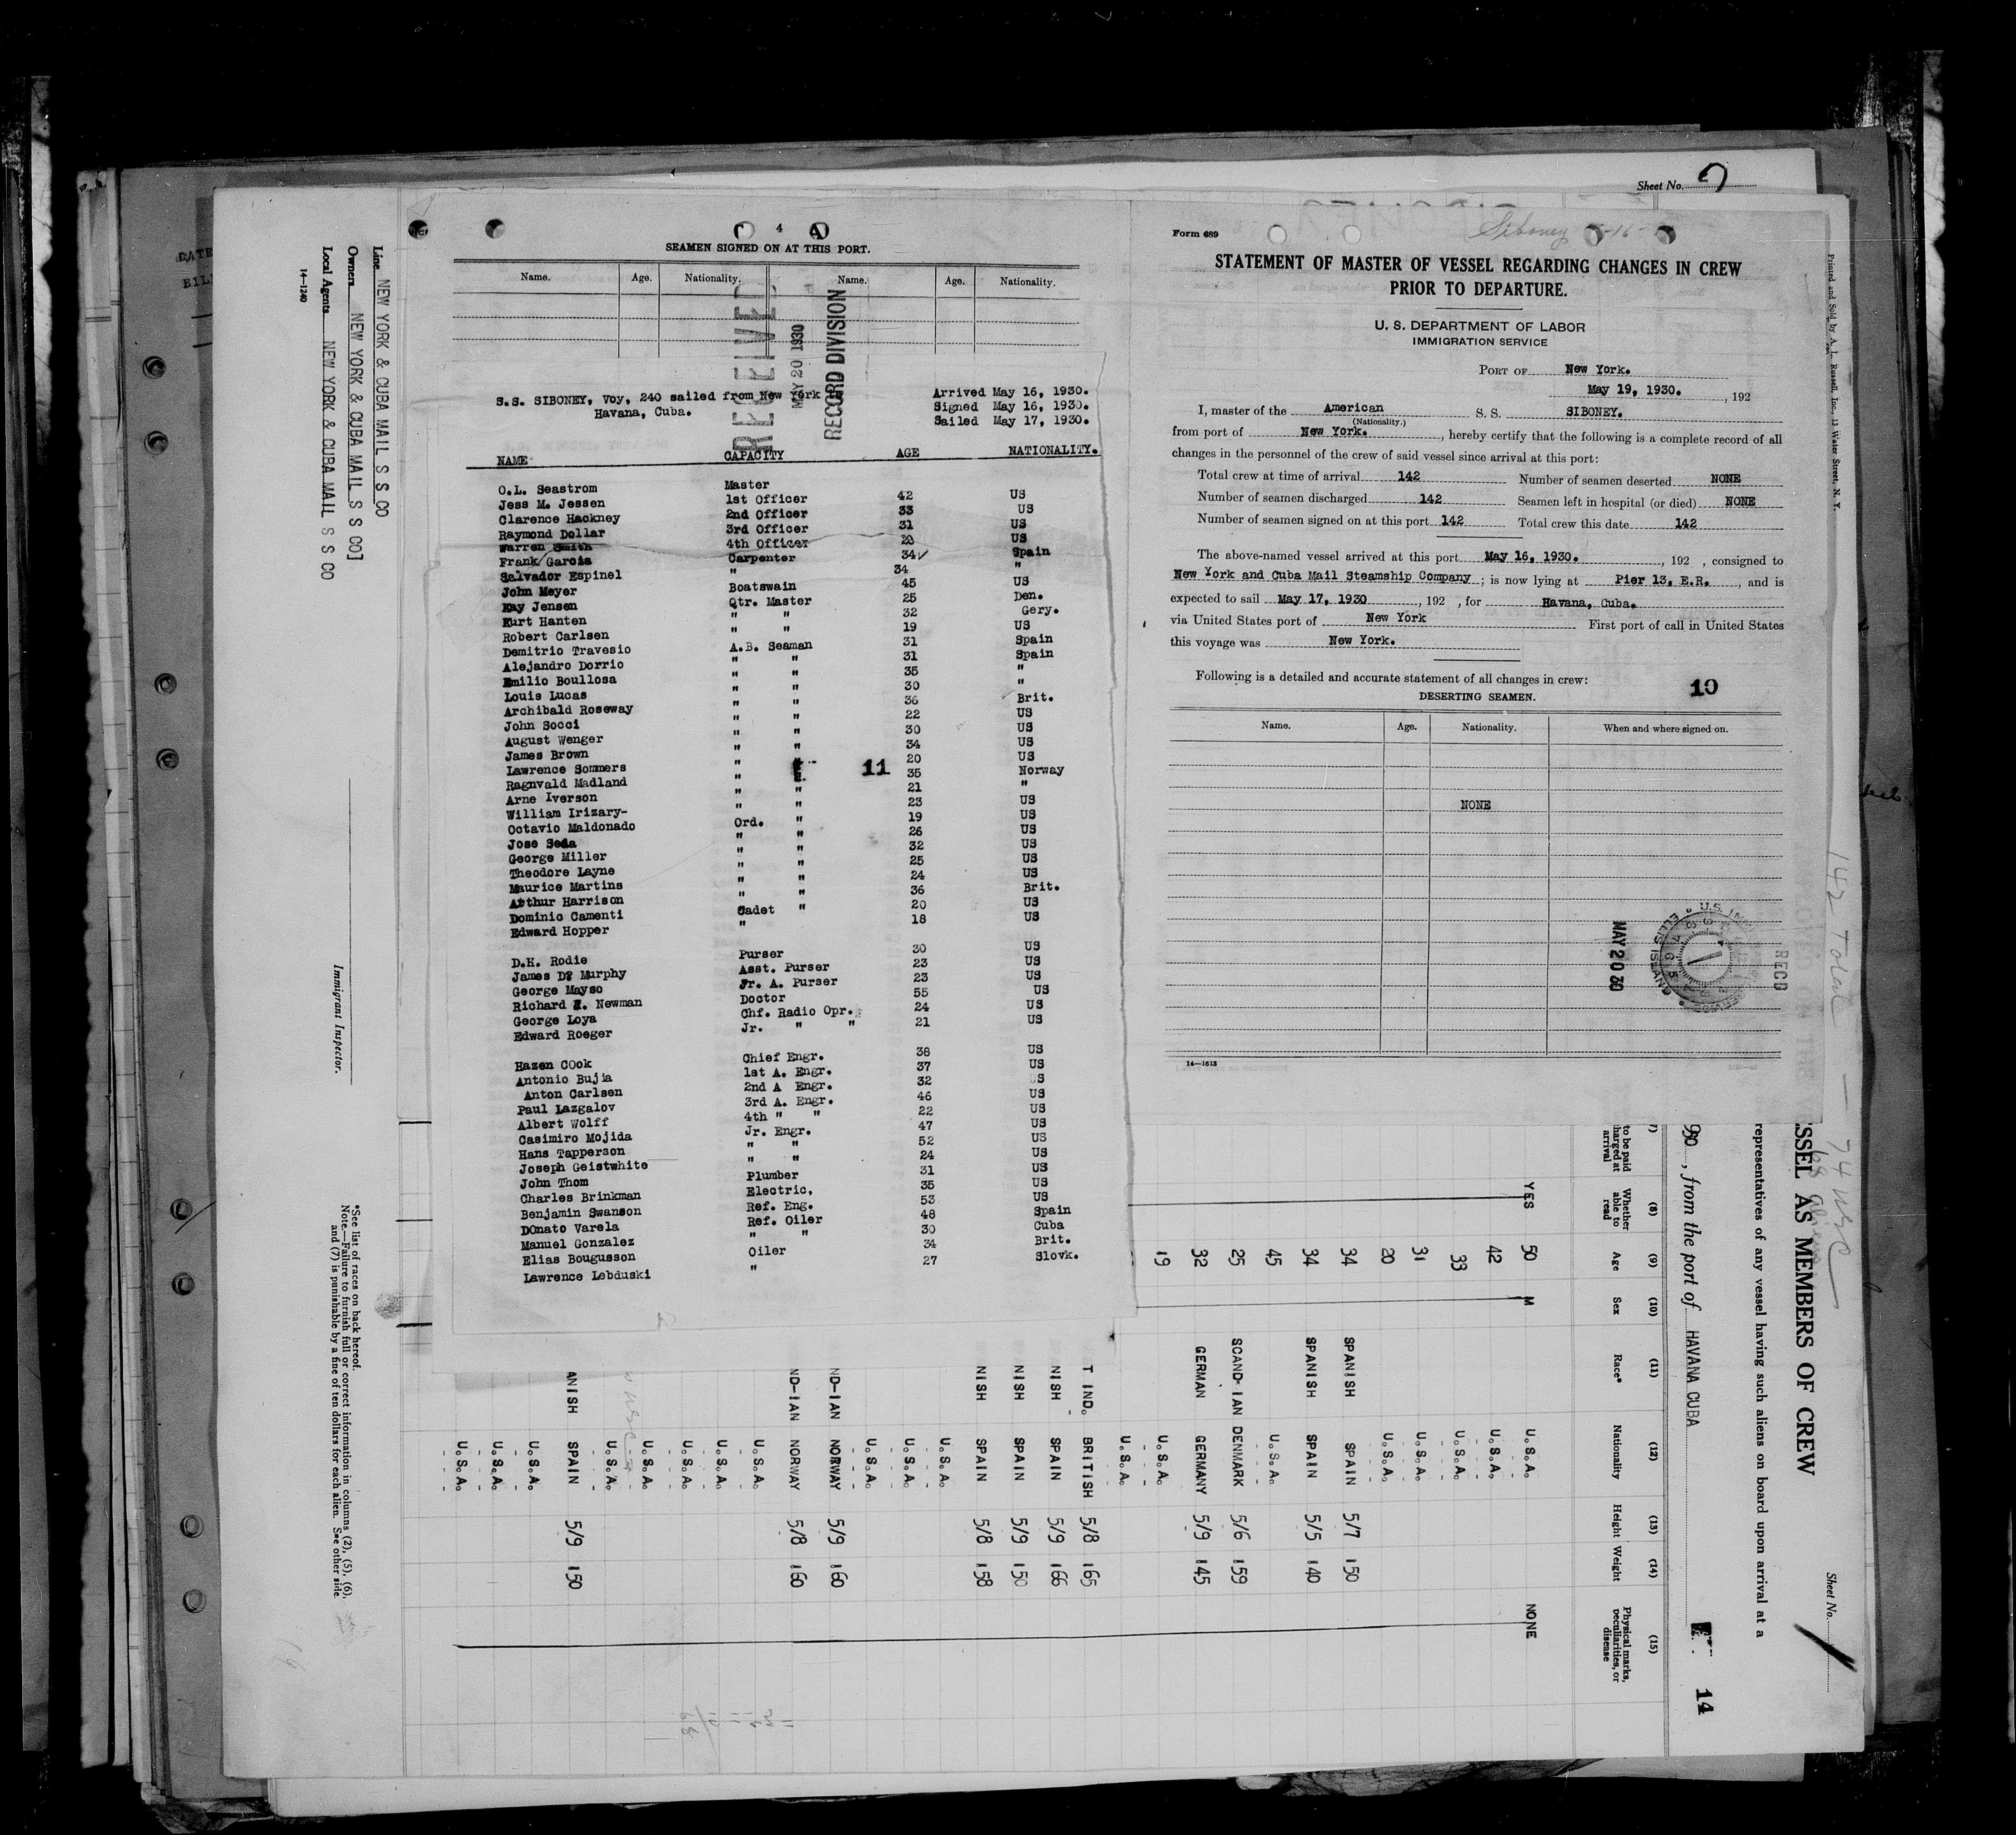 Sheet No.
4
SEAMEN SIGNED ON AT THIS PORT.
Name. Age. Nationality. Name. Age. Nationality.
RECEIVED
MAY 20 1930
RECORD DIVISION
S.S. SIBONEY, Voy, 240 sailed from New York
Havana, Cuba.
Arrived May 16, 1930.
Signed May 16, 1930.
Sailed May 17, 1930.
NAME CAPACITY AGE NATIONALITY.
O.L. Seastrom Master
Jess M. Jessen 1st Officer 42 US
Clarence Hackney 2nd Officer 33 US
Raymond Dollar 3rd Officer 31 US
Warren Smith 4th Officer 20 US
Frank Garcia Carpenter 34 Spain
Salvador Espinel " 34 "
John Meyer Boatswain 45 US
Kay Jensen Qtr. Master 25 Den.
Kurt Hanten " " 32 Gery.
Robert Carlsen " " 19 US
Demitrio Travesio A.B. Seaman 31 Spain
Alejandro Dorrio " " 31 Spain
Emilio Boullosa " " 35 "
Louis Lucas " " 30 "
Archibald Roseway " " 36 Brit.
John Socci " " 22 US
August Wenger " " 30 US
James Brown " " 34 US
Lawrence Sommers " " 20 US
11
Ragnvald Madland " " 35 Norway
Arne Iverson " " 21 "
William Irizary- " " 23 US
Octavio Maldonado Ord. " 19 US
Jose Seda " " 26 US
George Miller " " 32 US
Theodore Layne " " 25 US
Maurice Martins " " 24 US
Arthur Harrison " " 36 Brit.
Dominic Camenti Cadet " 20 US
Edward Hopper " 18 US
D.H. Rodie Purser 30 US
James D? Murphy Asst. Purser 23 US
George Mayso Jr. A. Purser 23 US
Richard Z. Newman Doctor 55 US
George Loya Chf. Radio Opr. 24 US
Edward Roeger Jr. " " 21 US
Hazen COok Chief Engr. 38 US
Antonio Bujia 1st A. Engr. 37 US
Anton Carlsen 2nd A Engr. 32 US
Paul Lazgalov 3rd A. Engr. 46 US
Albert Wolff 4th " " 22 US
Casimiro Mojida Jr. Engr. 47 US
Hans Tapperson " " 52 US
Joseph Geistwhite " " 24 US
John Thom Plumber 31 US
Charles Brinkman Electric, 35 US
Benjamin Swanson Ref. Eng. 53 US
DOnato Varela Ref. Oiler 48 Spain
Manuel Gonzalez " " 30 Cuba
Elias Bougusson Oiler 34 Brit.
Lawrence Lebduski " 27 Slovk.
Form 689
Siboney
STATEMENT OF MASTER OF VESSEL REGARDING CHANGES IN CREW
PRIOR TO DEPARTURE.
U. S. DEPARTMENT OF LABOR
IMMIGRATION SERVICE
PORT OF New York.
May 19, 1930. , 192
I, master of the American S. S. SIBONEY.
(Nationality.)
from port of New York. , hereby certify that the following is a complete record of all
changes in the personnel of the crew of said vessel since arrival at this port:
Total crew at time of arrival 142 Number of seamen deserted NONE
Number of seamen discharged 142 Seamen left in hospital (or died) NONE
Number of seamen signed on at this port 142 Total crew this date 142
The above-named vessel arrived at this port May 16, 1930. , 192 , consigned to
New York and Cuba Mail Steamship Company ; is now lying at Pier 13, E.R. , and is
expected to sail May 17, 1930 , 192 , for Havana, Cuba.
via United States port of New York First port of call in United States
this voyage was New York.
Following is a detailed and accurate statement of all changes in crew:
10
DESERTING SEAMEN.
Name. Age. Nationality. When and where signed on.
NONE
MAY 20 30
RECD
14—1613
Printed and Sold by A. L. Russell, Inc., 13 Water Street, N. Y.
142 Total — 74 USC
Line NEW YORK & CUBA MAIL S S CO
Owners NEW YORK & CUBA MAIL S S CO]
Local Agents NEW YORK & CUBA MAIL S S CO
14—1240
Immigrant Inspector.
*See list of races on back hereof.
Note.—Failure to furnish full or correct information in columns (2), (5), (6),
and (7) is punishable by a fine of ten dollars for each alien. See other side.
Sheet No. 1
SSEL AS MEMBERS OF CREW
representatives of any vessel having such aliens on board upon arrival at a
, from the port of HAVANA CUBA
14
(8) (9) (10) (11) (12) (13) (14) (15)
to be paid
arrival
Whether able to read Age Sex Race* Nationality Height Weight Physical marks, peculiarities, or disease
YES 50 M U.S.A. NONE
42 U.S.A.
33 U.S.A.
31 U.S.A.
20 U.S.A.
34 SPANISH SPAIN 5/7 150
34 SPANISH SPAIN 5/5 140
45 U.S.A.
25 SCAND-IAN DENMARK 5/6 159
32 GERMAN GERMANY 5/9 145
19 U.S.A.
U.S.A.
T IND. BRITISH 5/8 165
NISH SPAIN 5/9 166
NISH SPAIN 5/9 150
NISH SPAIN 5/8 158
U.S.A.
U.S.A.
U.S.A.
ND-IAN NORWAY 5/9 160
ND-IAN NORWAY 5/8 160
U.S.A.
U.S.A.
U.S.A.
U.S.A.
U.S.A.
ANISH SPAIN 5/9 150
U.S.A.
U.S.A.
U.S.A.